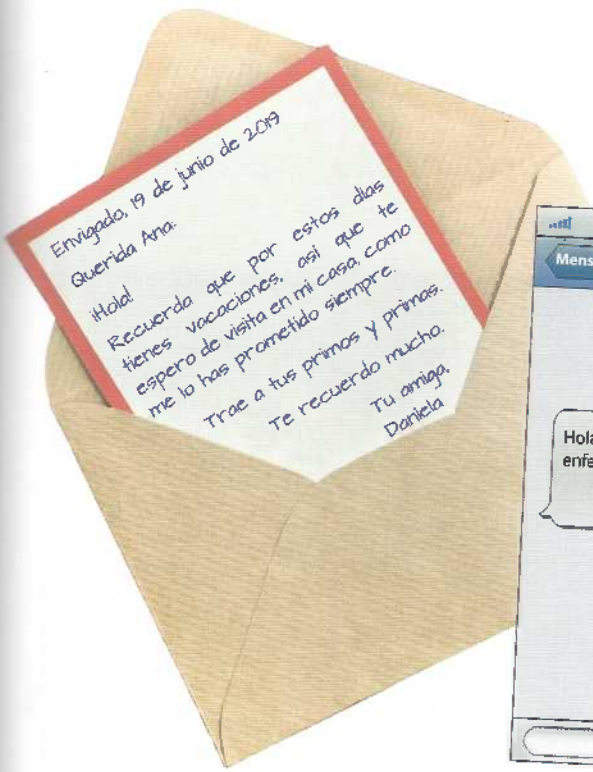 Envigado, 19 de junio de 2019
Querida Ana:
¡Hola!
Recuerda que por estos días
tienes vacaciones, así que te
espero de visita en mi casa, como
me lo has prometido siempre.
Trae a tus primos y primas.
Te recuerdo mucho.
Tu amiga,
Daniela
Mens
Hola
enfe